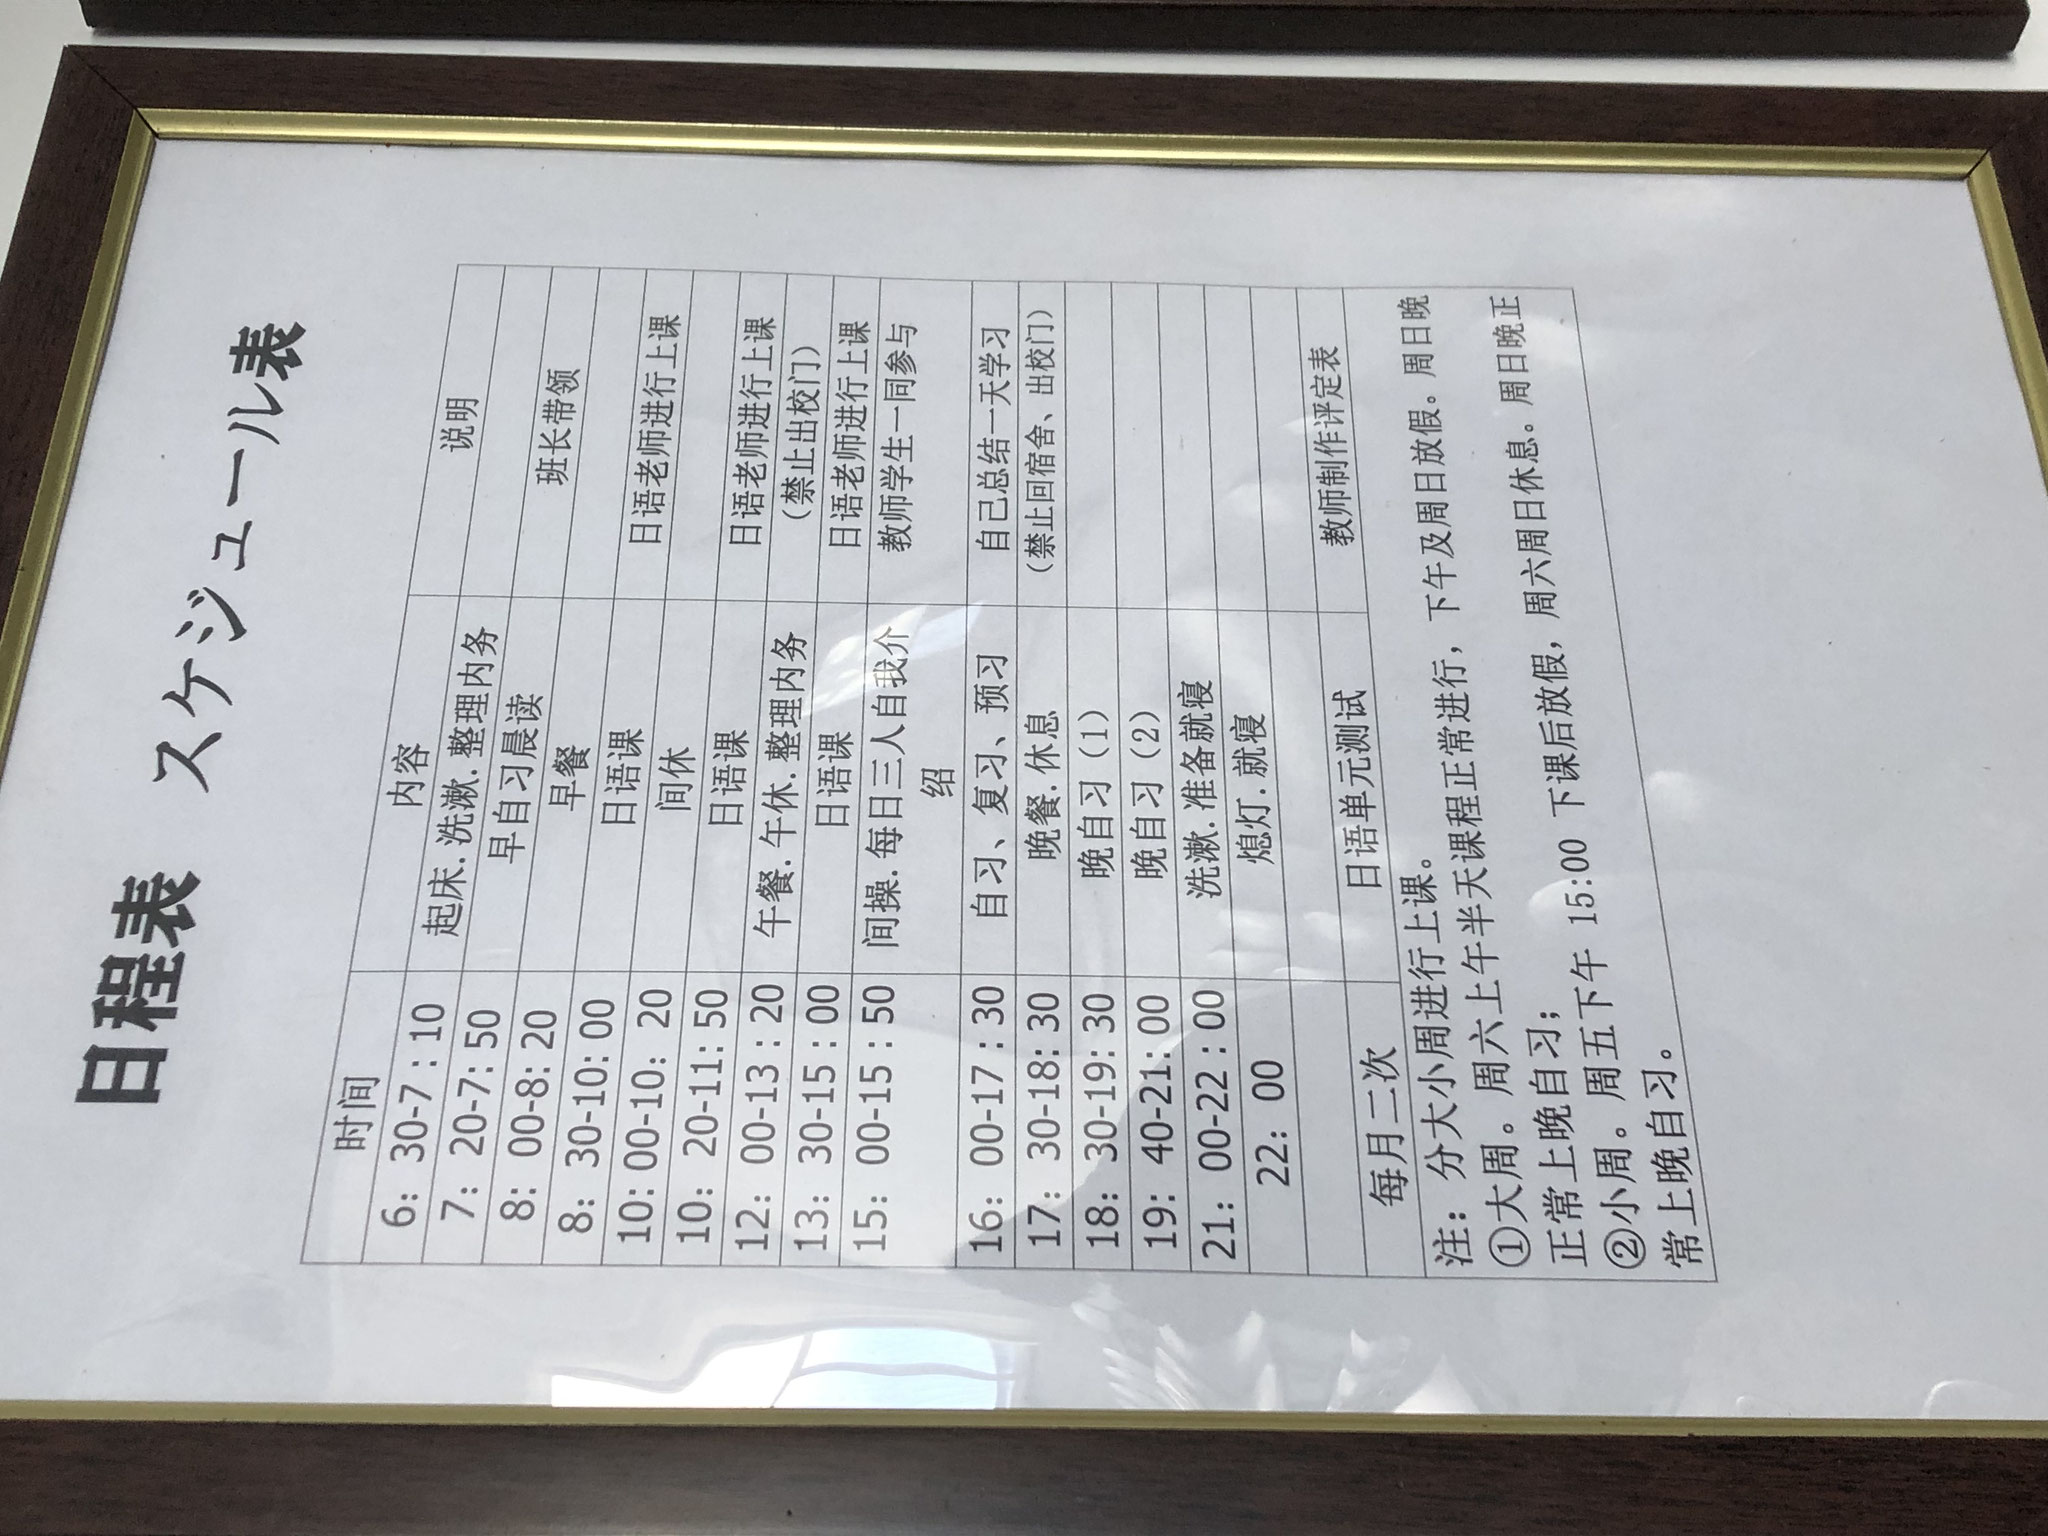 日程表 スケジュール表
时间 内容 说明
6: 30-7 : 10 起床.洗漱.整理内务
7: 20-7: 50 早自习晨读 班长带领
8: 00-8: 20 早餐
8: 30-10: 00 日语课 日语老师进行上课
10: 00-10: 20 间休
10: 20-11: 50 日语课 日语老师进行上课
12: 00-13 : 20 午餐.午休.整理内务 (禁止出校门)
13: 30-15 : 00 日语课 日语老师进行上课
15: 00-15 : 50 间操.每日三人自我介 教师学生一同参与
绍
16: 00-17 : 30 自习、复习、预习 自己总结一天学习
17: 30-18: 30 晚餐.休息 (禁止回宿舍、出校门)
18: 30-19: 30 晚自习 (1)
19: 40-21: 00 晚自习 (2)
21: 00-22 : 00 洗漱.准备就寝
22: 00 熄灯.就寝
每月二次 日语单元测试 教师制作评定表
注: 分大小周进行上课。
①大周。周六上午半天课程正常进行, 下午及周日放假。周日晚
正常上晚自习;
②小周。周五下午 15:00 下课后放假, 周六周日休息。周日晚正
常上晚自习。